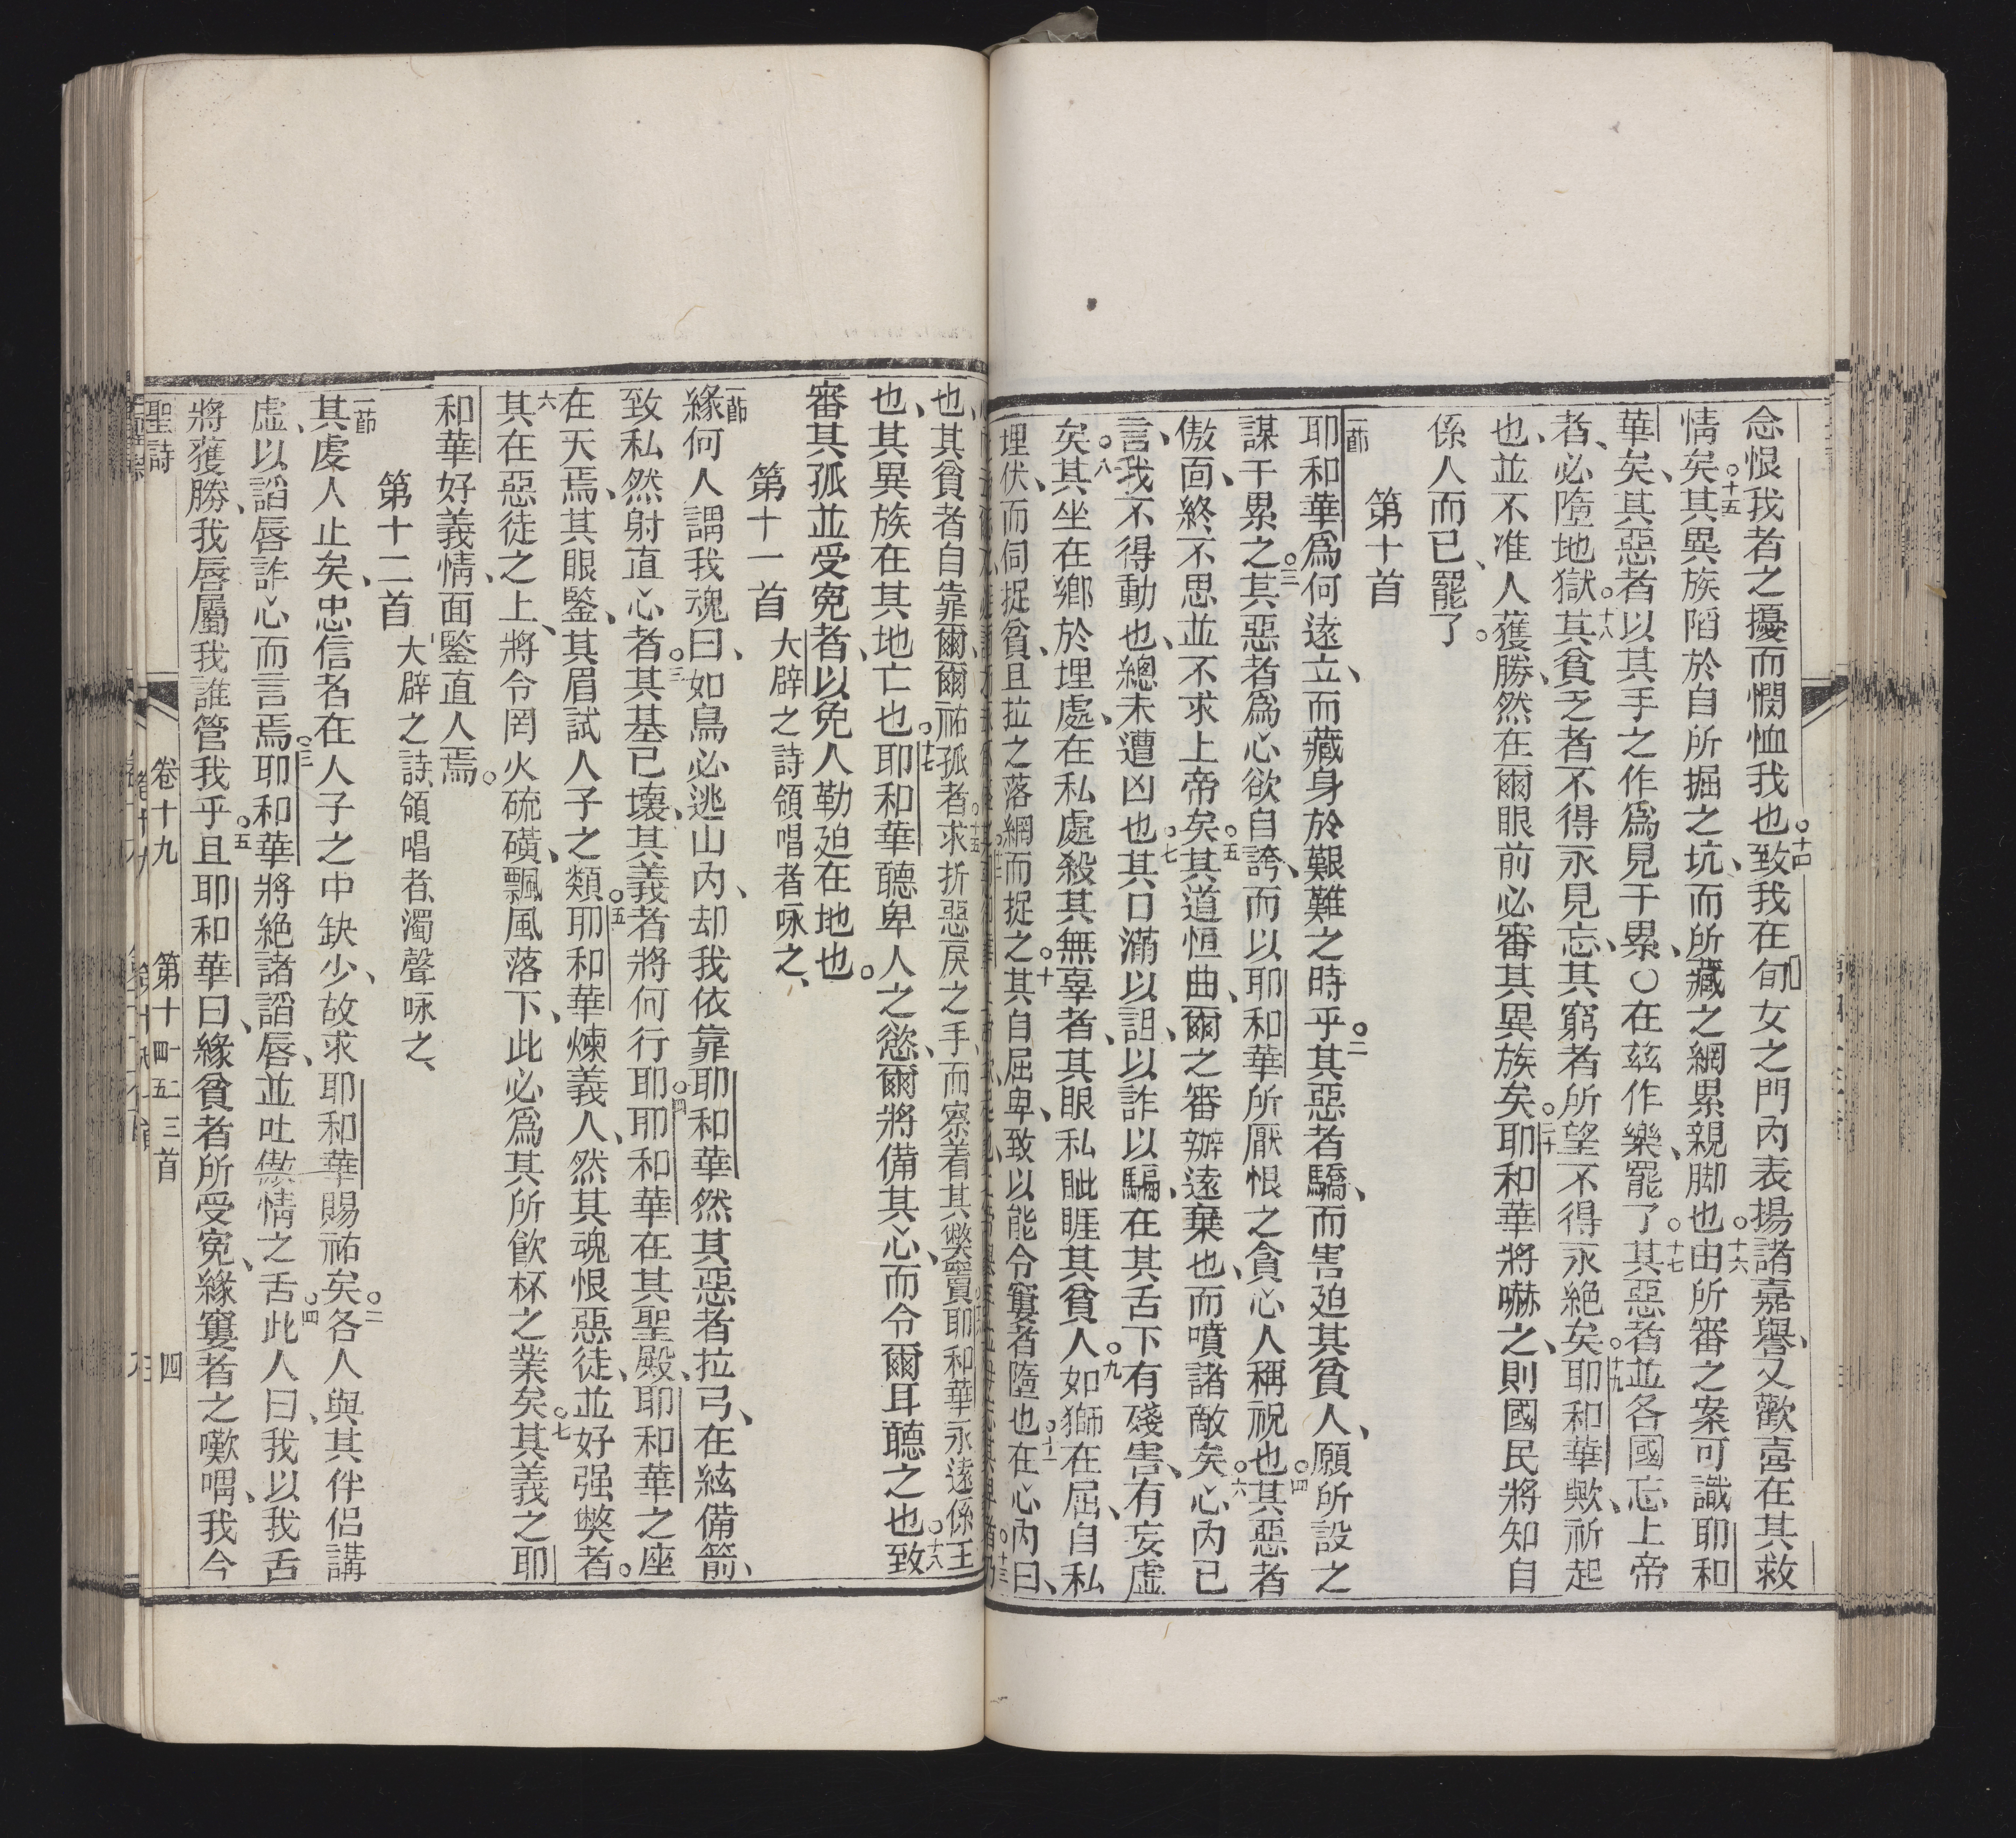 念恨我者之擾而憫恤我也○十四致我在甸女之門內表揚諸嘉譽又歡喜在其救
情矣○十五其異族陷於自所掘之坑而所藏之網累親脚也○十六由所審之案可識耶和
華矣其惡者以其手之作為見干累○在茲作樂罷了○十七其惡者並各國忘上帝
者必墮地獄○十八其貧乏者不得永見忘其窮者所望不得永絕矣○十九耶和華歟祈起
也並不准人獲勝然在爾眼前必審其異族矣○二十耶和華將嚇之則國民將知自
係人而已罷了。
第十首
一節耶和華為何遠立而藏身於艱難之時乎○二其惡者驕而害廹其貧人願所設之
謀干累之○三其惡者為心欲自誇而以耶和華所厭恨之貪心人稱祝也○四其惡者
傲面終不思並不求上帝矣○五其道恒曲爾之審辦遠棄也而噴諸敵矣○六心內已
言我不得動也總未遭凶也○七其口滿以詛以詐以騙在其舌下有殘害有妄虛
矣○八其坐在鄉於埋處在私處殺其無辜者其眼私眦睚其貧人○九如獅在屈自私
埋伏而伺捉貧且拉之落網而捉之○十其自屈卑致以能令窶者墮也○十一在心內曰
也其貧者自靠爾爾祐孤者○十五求折惡戾之手而察着其獘竇耶和華永遠係王
也其異族在其地亡也○十七耶和華聽卑人之慾爾將備其心而令爾耳聽之也○十八致
審其孤並受寃者以免人勒廹在地也。
第十一首 大辟之詩領唱者咏之
一節緣何人謂我魂曰如鳥必逃山內却我依靠耶和華然其惡者拉弓在絃備箭
致私然射直心者○三其基已壞其義者將何行耶○四耶和華在其聖殿耶和華之座
在天焉其眼鑒其眉試人子之類○五耶和華煉義人然其魂恨惡徒並好强獘者。
六其在惡徒之上將令罔火硫磺飄風落下此必為其所飲杯之業矣○七其義之耶
和華好義情面鑒直人焉。
第十二首 大辟之詩領唱者濁聲咏之
一節其虔人止矣忠信者在人子之中缺少故求耶和華賜祐矣○二各人與其伴侶講
虛以謟唇詐心而言焉○三耶和華將絕諸謟唇並吐傲情之舌○四此人曰我以我舌
將獲勝我唇屬我誰管我乎○五且耶和華曰緣貧者所受寃緣窶者之嘆喟我今
聖詩 卷十九 第十一二三四五首 四